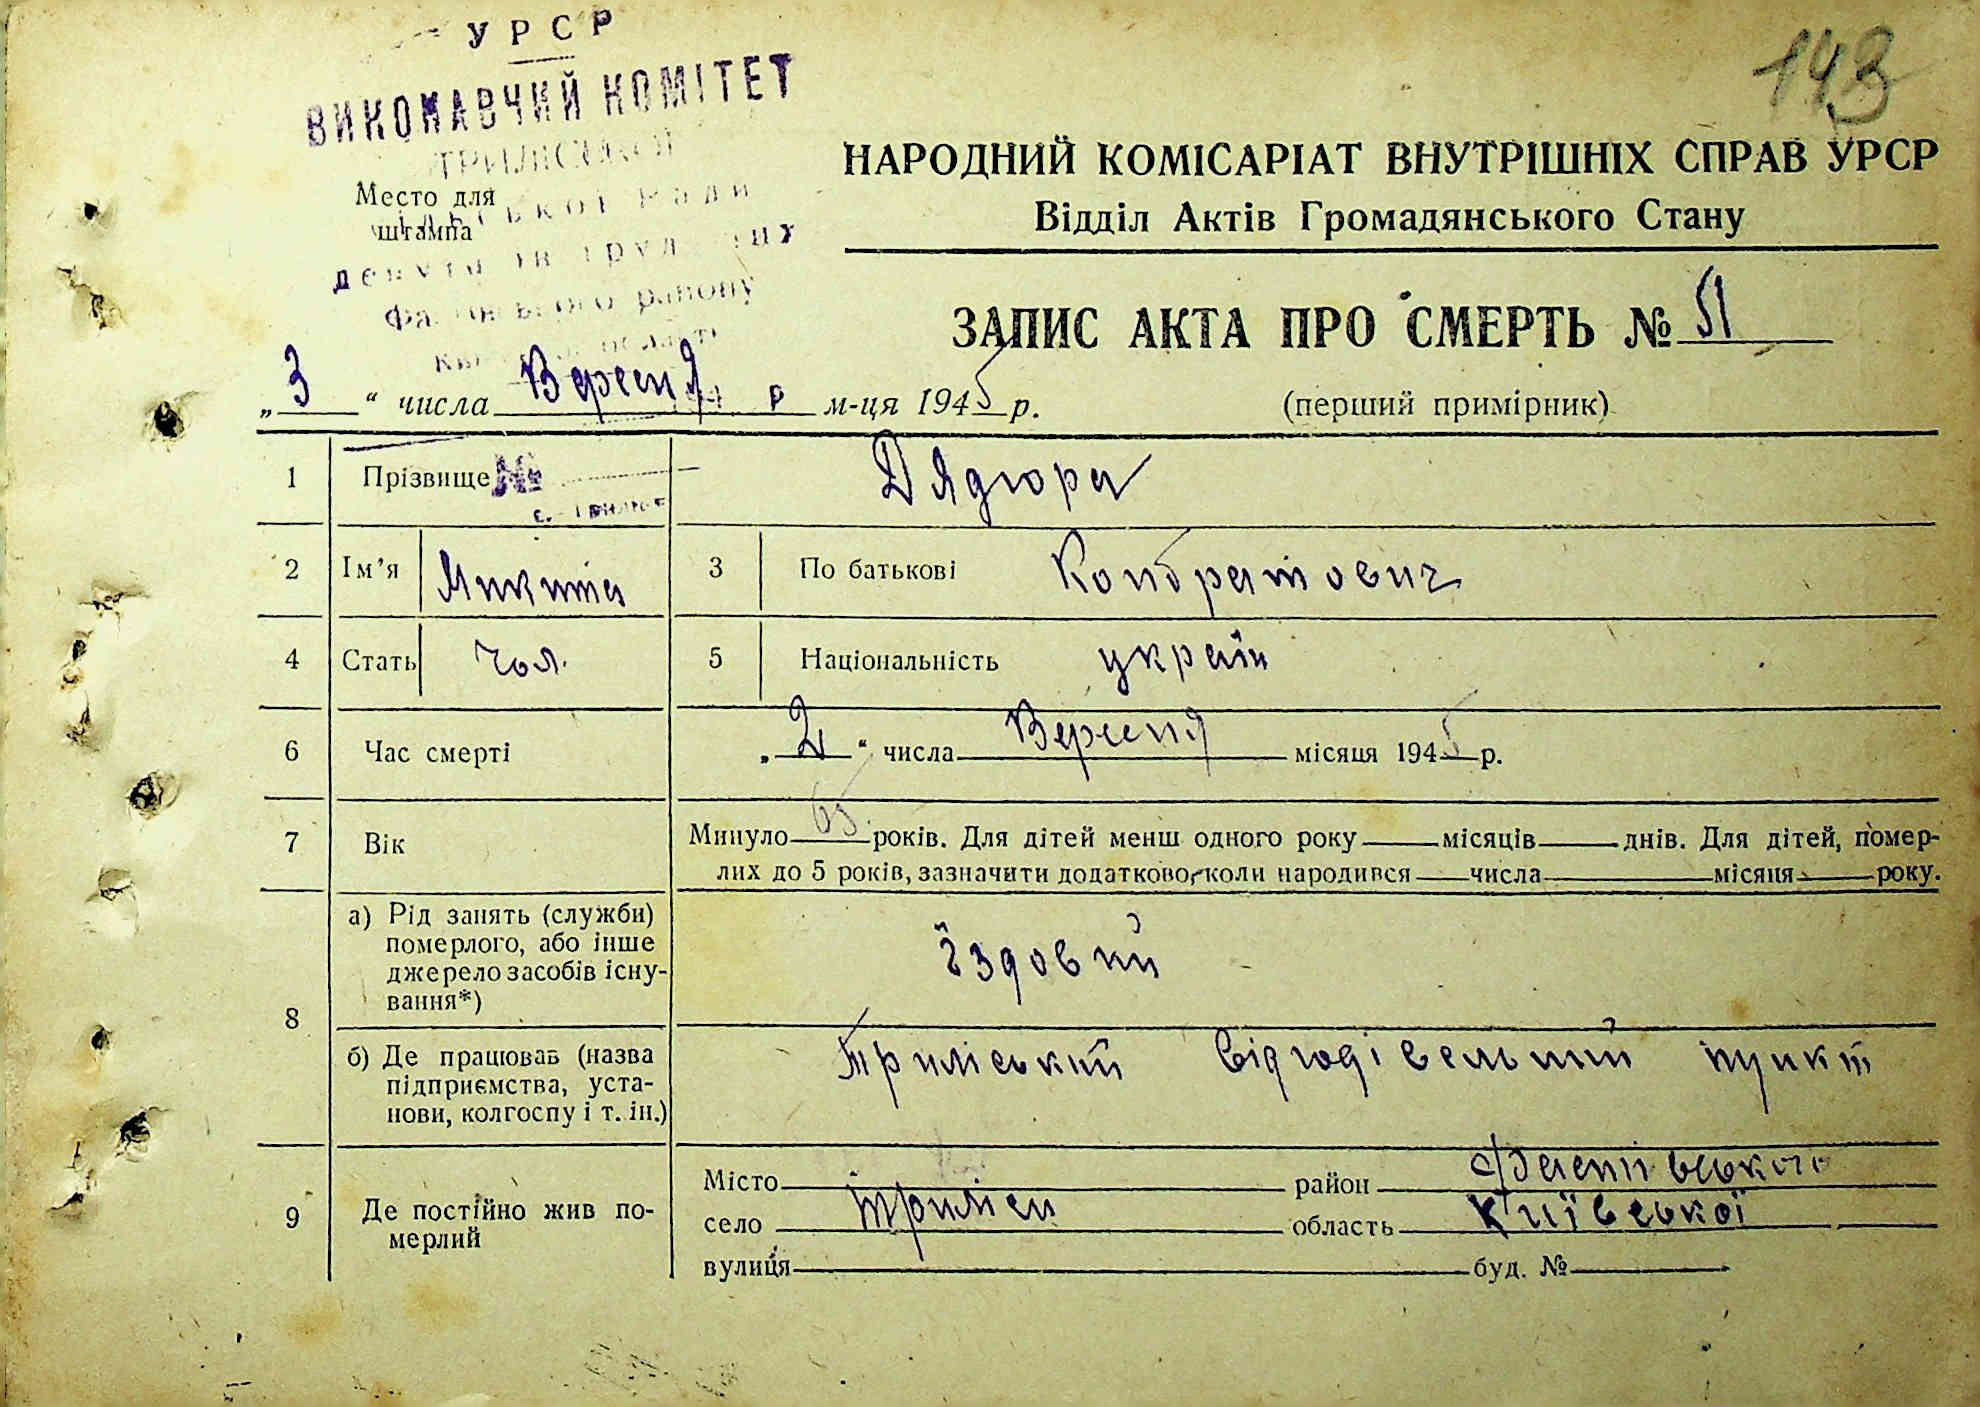 УРСР
ВИКОНАВЧИЙ КОМІТЕТ
ТРИЛІСЬКОЇ
Место для
штампа
району
143
НАРОДНИЙ КОМІСАРІАТ ВНУТРІШНІХ СПРАВ УРСР
Відділ Актів Громадянського Стану
ЗАПИС АКТА ПРО СМЕРТЬ № 51
„ 3 “ числа Вересня м-ця 1945 р.
(перший примірник)
1 Прізвище № Дядюра
2 Ім'я Микита 3 По батькові Кондратович
4 Стать чол. 5 Національність україн
6 Час смерті „ 2 “ числа Вересня місяця 1945 р.
7 Вік Минуло 65 років. Для дітей менш одного року місяців днів. Для дітей, помер-
лих до 5 років, зазначити додатково, коли народився числа місяця року.
8 а) Рід занять (служби)
померлого, або інше
джерело засобів існу-
вання*)
їздовий
б) Де працював (назва
підприємства, уста-
нови, колгоспу і т. ін.)
Триліський відгодівельний пункт
9 Де постійно жив по-
мерлий
Місто район Фастівського
село Триліси область Київської
вулиця буд. №